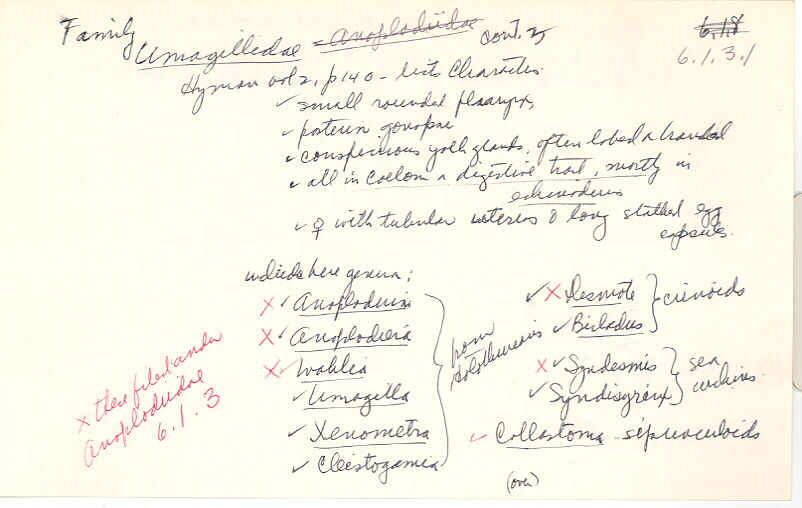 Family Umagillidae = Anoplodiidae cont. 2
6.1.8
6.1.3.1
Hyman vol 2, p 140 - lists Characters:
✓ small rounded pharynx
✓ posterior gonopore
✓ conspicuous yolk glands, often lobed & branched
✓ all in coelom or digestive tract, mostly in
echinoderms
✓ ♀ with tubular uterus & long stalked egg
capsules.
include here genera:
× ✓ Anoplodium
× ✓ Anoplodiera
× ✓ Wahlia
✓ Umagilla
✓ Xenometra
✓ Cleistogamia
from
Holothurians
✓ × Desmote
✓ Bicladus
crinoids
× ✓ Syndesmis
✓ Syndisyrinx
sea
urchins.
✓ Collastoma - sipunculoids
× these filed under
Anoplodiidae
6.1.3
(over)